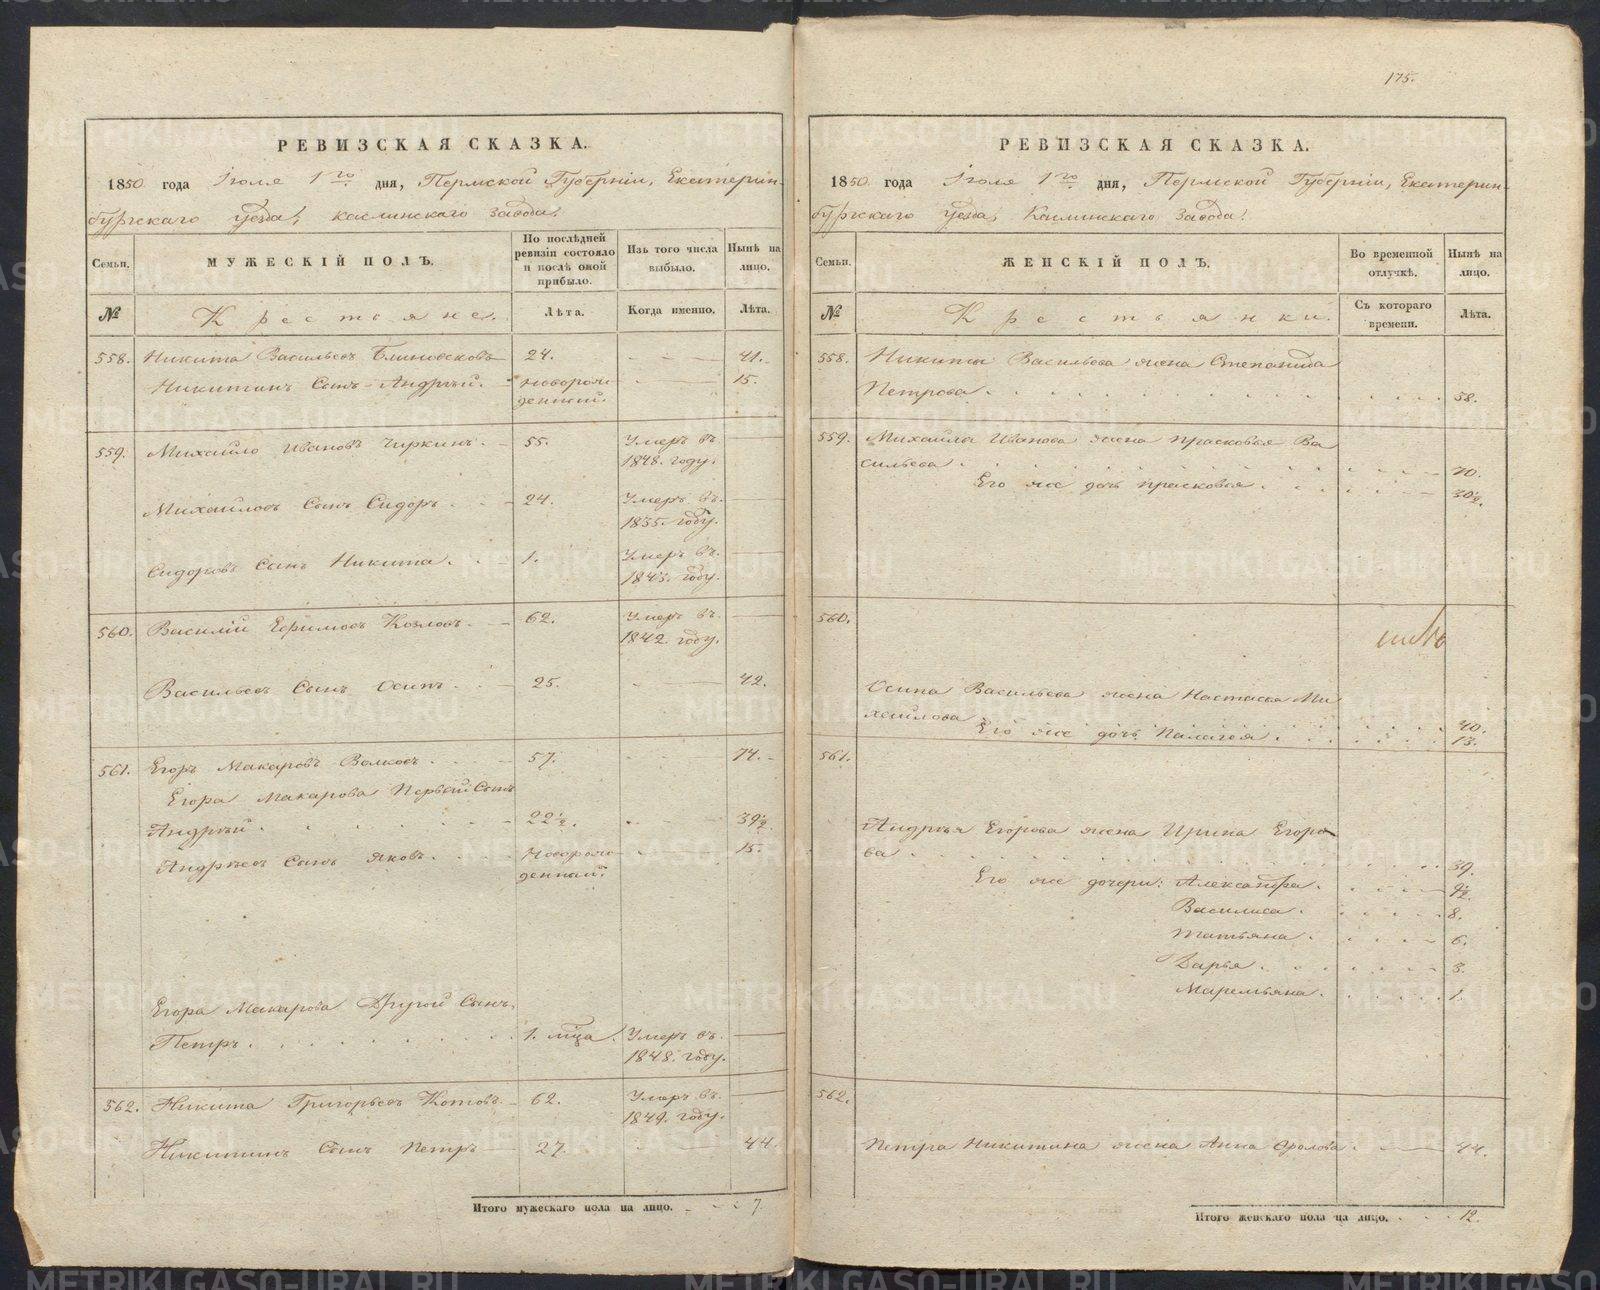 175.
РЕВИЗСКАЯ СКАЗКА.
1850 года Іюля 1го дня, Пермской Губерніи, Екатерин-
бургскаго уезда, каслинскаго завода.
Семьи.
МУЖЕСКІЙ ПОЛЪ.
По послѣдней ревизіи состояло и послѣ оной прибыло.
Изъ того числа выбыло.
Нынѣ на лицо.
№
Крестьяне.
Лѣта.
Когда именно.
Лѣта.
558. Никита Васильевъ Блиновсковъ 24. 41.
Никитинъ Сынъ Андрѣй. новорож- 15.
денный.
559. Михайло Ивановъ Чиркинъ. 55. Умеръ въ
1848. году.
Михайловъ Сынъ Сидоръ. 24. Умеръ въ
1835. году.
Сидоровъ Сынъ Никита. 1. Умеръ въ
1843. году.
560. Василій Ефимовъ Козловъ. 62. Умеръ въ
1842. году.
Васильевъ Сынъ Осипъ. 25. 42.
561. Егоръ Макаровъ Волковъ. 57. 74.
Егора Макарова Первый Сынъ
Андрѣй. 22½. 39½.
Андрѣевъ Сынъ Яковъ. Новорож- 15.
денный.
Егора Макарова Другой Сынъ
Петръ. 1. мца. Умеръ въ
1848. году.
562. Никита Григорьевъ Котовъ. 62. Умеръ въ
1849. году.
Никитинъ Сынъ Петръ 27. 44.
Итого мужескаго пола на лицо. 7.
РЕВИЗСКАЯ СКАЗКА.
1850 года Іюля 1го дня, Пермской Губерніи, Екатерин-
бургскаго уезда, Каслинскаго завода.
Семьи.
ЖЕНСКІЙ ПОЛЪ.
Во временной отлучкѣ.
Нынѣ на лицо.
№
Крестьянки.
Съ котораго времени.
Лѣта.
558. Никиты Васильева жена Степанида
Петрова. 58.
559. Михайла Иванова жена Прасковья Ва
сильева. 70.
Его же дочь Прасковья. 30½.
560.
Осипа Васильева жена Настасья Ми
хайлова 40.
Его же дочь Палагея. 13.
561.
Андрѣя Егорова жена Ирина Егоро
ва. 39.
Его же дочери: Александра. 9½.
Василиса. 8.
Татьяна. 6.
Дарья. 3.
Маремьяна. 1.
562.
Петра Никитина жена Анна Фролова. 44.
Итого женскаго пола на лицо. 12.
METRIKI.GASO-URAL.RU